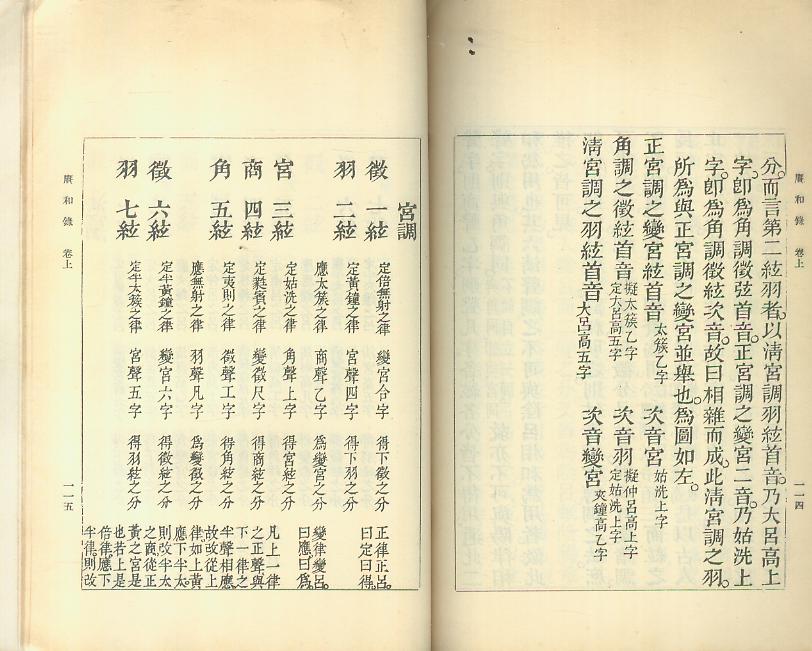 賡和錄 卷上
一一四
分。而言第二絃羽者。以清宮調羽絃首音。乃大呂高上
字。卽爲角調徵弦首音。正宮調之變宮二音。乃姑洗上
字。卽爲角調徵絃次音。故曰相雜而成。此清宮調之羽。
所爲與正宮調之變宮並舉也。爲圖如左。
正宮調之變宮絃首音 太簇乙字 次音宮 姑洗上字
角調之徵絃首音 擬太簇乙字 定大呂高五字 次音羽 擬仲呂高上字 定姑洗上字
清宮調之羽絃首音 大呂高五字 次音變宮 夾鐘高乙字
宮調
徵 一絃 定倍無射之律 變宮合字 得下徵之分 正律正呂。曰定曰得。
羽 二絃 定黃鐘之律 宮聲四字 得下羽之分
應太簇之律 商聲乙字 爲變宮之分 變律變呂。曰應曰爲。
宮 三絃 定姑洗之律 角聲上字 得宮絃之分
商 四絃 定蕤賓之律 變徵尺字 得商絃之分
角 五絃 定夷則之律 徵聲工字 得角絃之分
應無射之律 羽聲凡字 爲變徵之分
徵 六絃 定半黃鐘之律 變宮六字 得徵絃之分
羽 七絃 定半太簇之律 宮聲五字 得羽絃之分
凡上一律
之正聲與
下一律之
半聲相應。
故改從上
律如上黃
應下半太。
則改半太
之商。從正
黃之宮是
也。若上是
倍律。應下
半律。則改
賡和錄 卷上
一一五